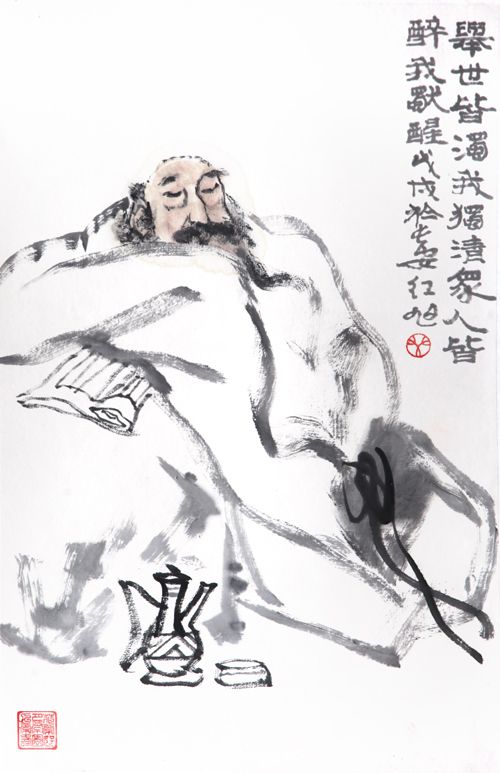 舉世皆濁我獨清衆人皆
醉我獨醒戊戌於长安红旭